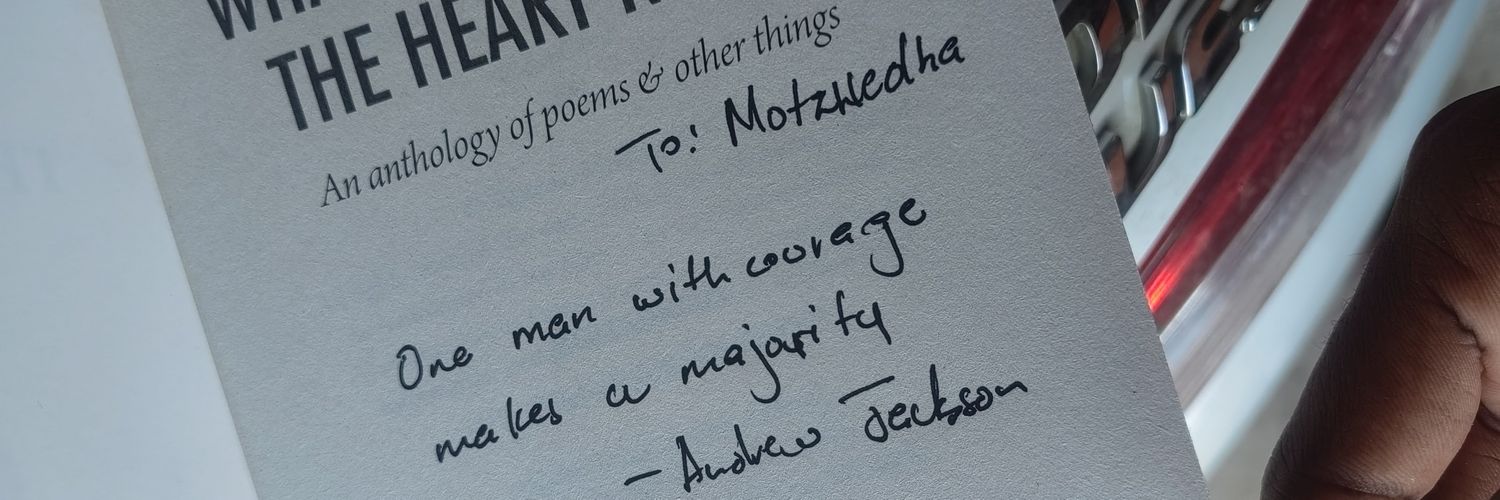 THE HEART
An anthology of poems & other things
To: Motzwedha
One man with courage
makes a majority
- Andrew Jackson